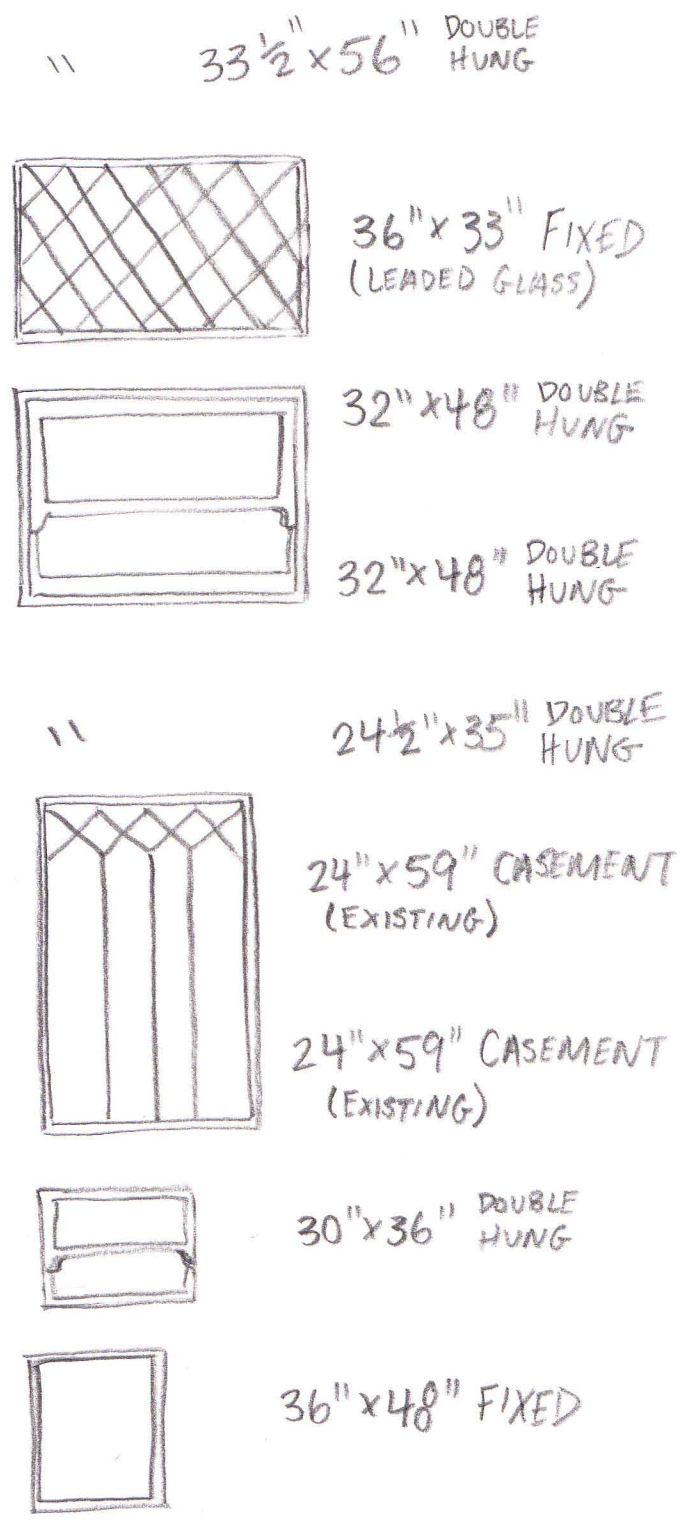 " 33 ½" x 56" DOUBLE HUNG
36" x 33" FIXED
(LEADED GLASS)
32" x 48" DOUBLE HUNG
32" x 48" DOUBLE HUNG
" 24½" x 35" DOUBLE HUNG
24" x 59" CASEMENT
(EXISTING)
24" x 59" CASEMENT
(EXISTING)
30" x 36" DOUBLE HUNG
36" x 48" FIXED